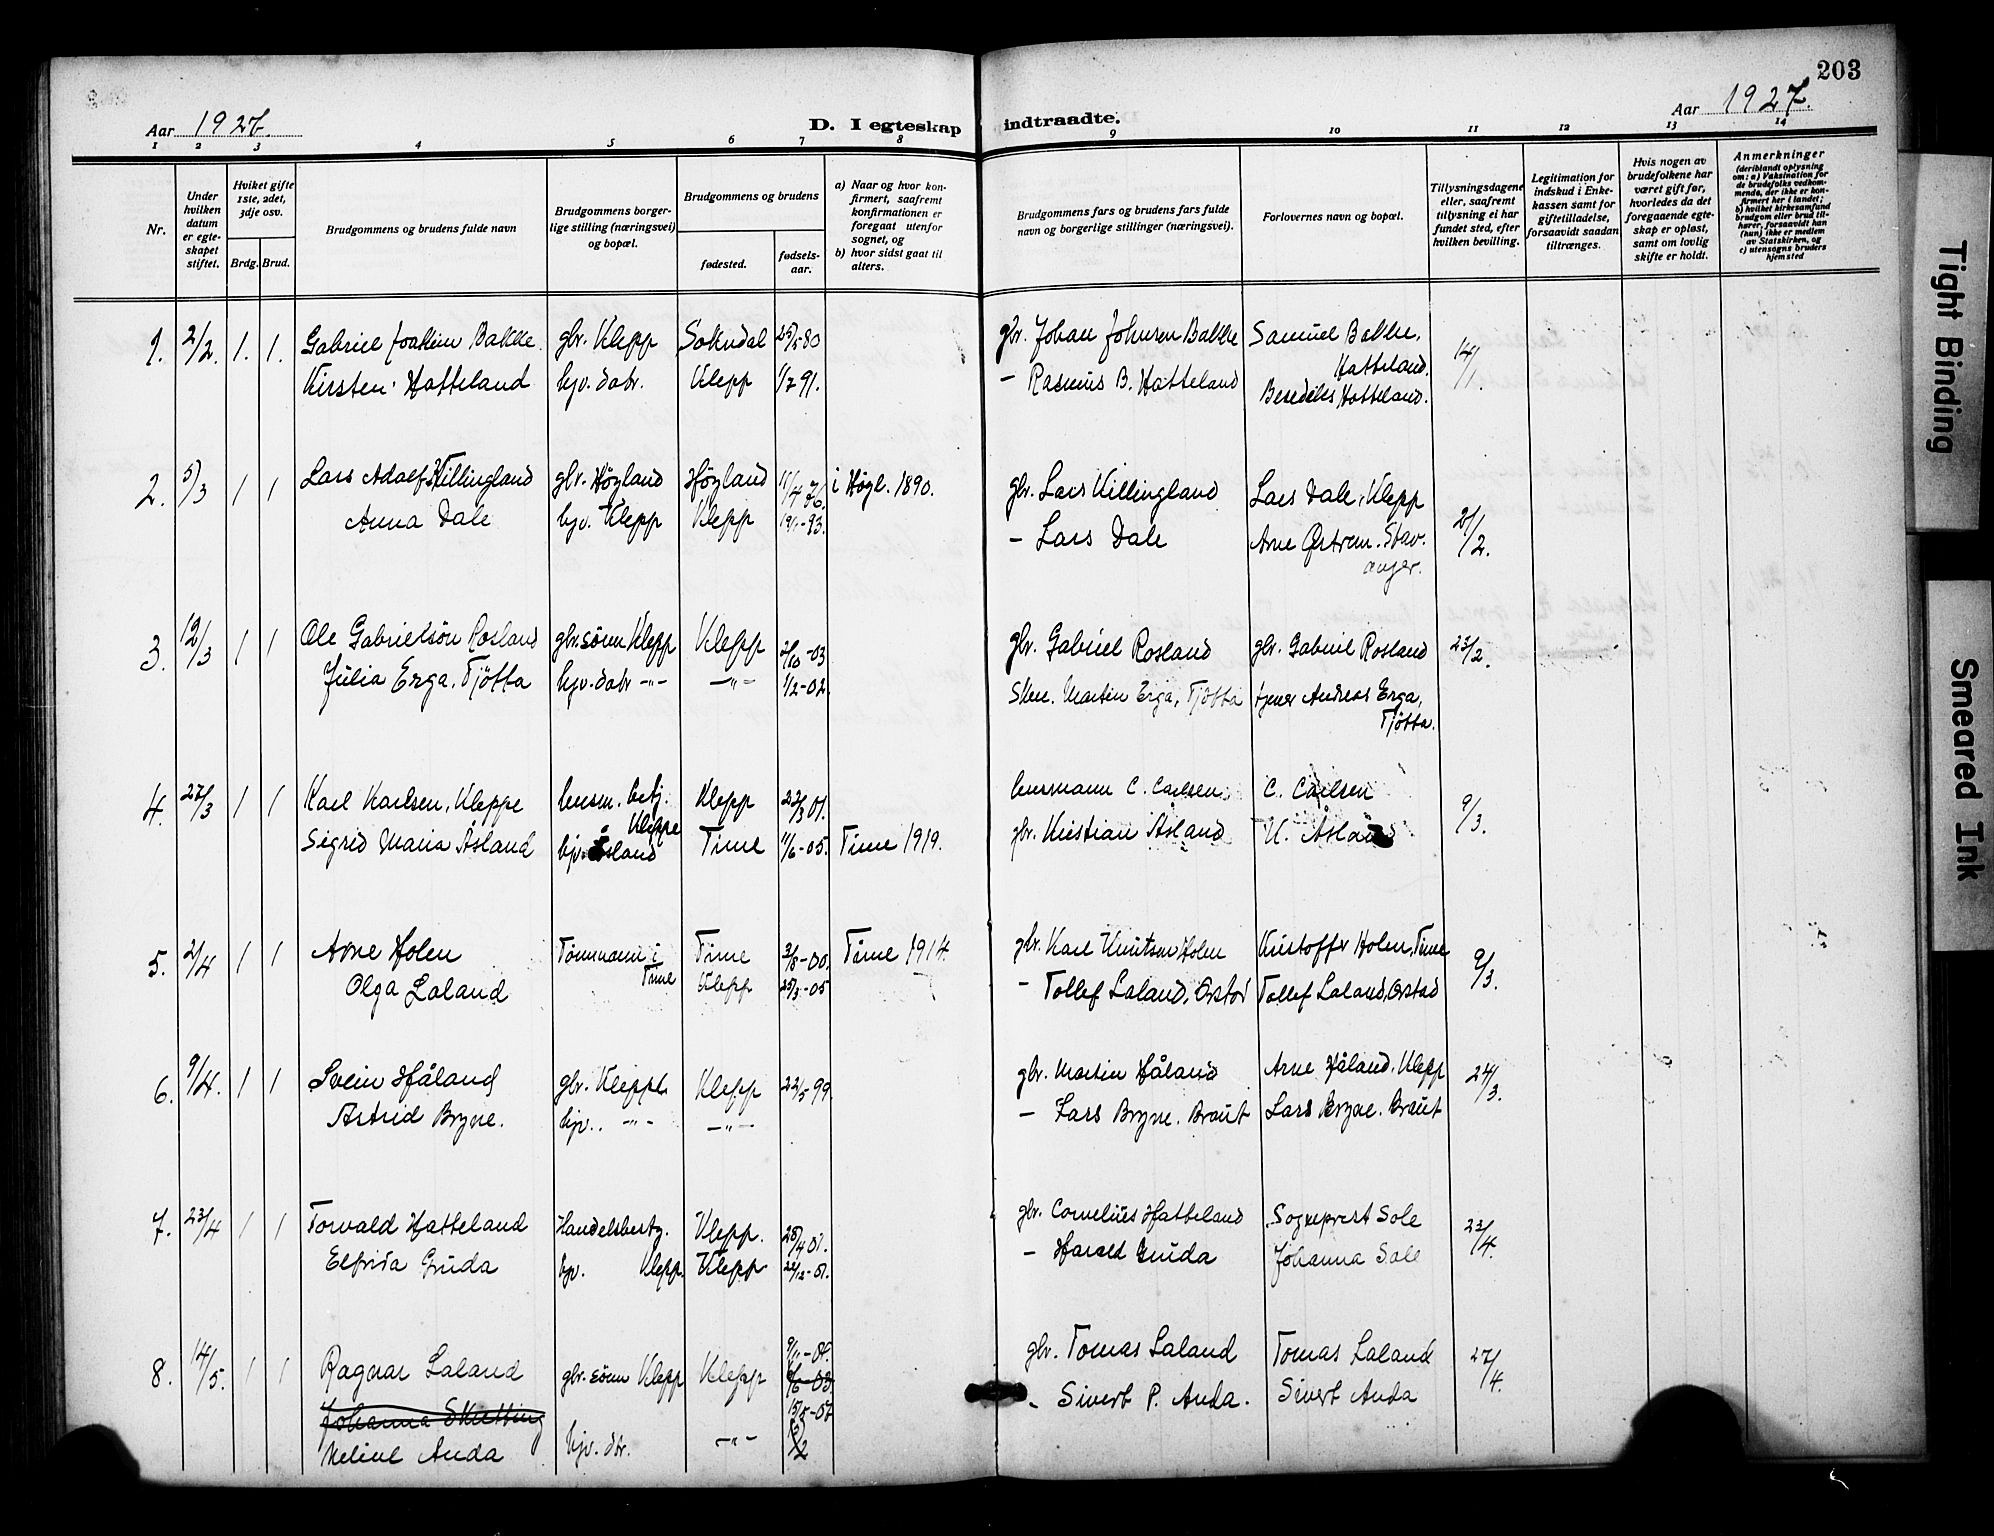 203
Aar 1927.
D. I egteskap indtraadte.
Aar 1927.
1 2 3 4 5 6 7 8 9 10 11 12 13 14
Nr.
Under hvilken datum er egteskapet stiftet.
Hviket gifte 1ste, 2det, 3dje osv.
Brdg. Brud.
Brudgommens og brudens fulde navn
Brudgommens borgerlige stilling (næringsvei) og bopæl.
Brudgommens og brudens
fødested.
fødselsaar.
a) Naar og hvor konfirmert, saafremt konfirmationen er foregaat utenfor sognet, og
b) hvor sidst gaat til alters.
Brudgommens fars og brudens fars fulde navn og borgerlige stillinger (næringsvei).
Forlovernes navn og bopæl.
Tillysningsdagene eller, saafremt tillysning ei har fundet sted, efter hvilken bevilling.
Legitimation for indskud i Enkekassen samt for giftetilladelse, forsaavidt saadan tiltrænges.
Hvis nogen av brudefolkene har været gift før, hvorledes da det foregaaende egteskap er opløst, samt om lovlig skifte er holdt.
Anmerkninger (deriblandt oplysning om: a) Vaksination for de brudefolks vedkommende, der ikke er konfirmert her i landet; b) hvilket kirkesamfund brudgom eller brud tilhører, forsaavidt han (hun) ikke er medlem av Statskirken, og c) utensogns bruders hjemsted
1. 2/2. 1. 1. Gabriel Joakim Bakke. gbr. Klepp Sokndal 25/5 80 gbr. Johan Johnsen Bakke Samuel Bakke, Hatteland. 14/1.
Kirsten Hatteland hjv. datr. Klepp 1/7 91. – Rasmus B. Hatteland Hatteland.
2. 5/3 1 1 Lars Adolf Killingland gbr. Høgland Høgland 11/4 76. i Høgl. 1890. gbr. Lars Killingland Lars Dale, Klepp
Anna Dale hjv. Klepp Klepp – Lars Dale Arne Stavanger.
3. 12/3 1 1 Ole Gabrielsøn Rosland gbr. sønn Klepp Klepp 2/10-03 gbr. Gabriel Rosland gbr. Gabriel Rosland 23/2.
Julia Erga, Tjøtta hjv. datr -"- -"- 1/2-02. Martin Erga, Tjøtta Andreas Erga, Tjøtta.
4. 27/3 1 1 Karl Karlsen, Kleppe lensm. betj. Kleppe Klepp 22/3 01. lensmann C. Carlsen C. Carlsen 9/3.
Sigrid Maria Åsland hjv. Åsland Time 11/6-05. Time 1919. gbr. Kristian Åsland K. Åsland
5. 2/4 1 1 Arne Holen Tømmermann i Time Time 3/8-00. Time 1914. gbr. Karl Knutsen Holen Kristoffer Holen, Time 9/3.
Olga Laland Klepp 25/3-05 – Tollef Laland, Orstad Tollef Laland, Orstad
6. 9/4. 1 1 Svein Håland gbr. Kleppe Klepp 22/5 99 gbr. Martin Håland Arne Håland, Klepp 24/3.
Astrid Bryne. hjv. -"- -"- – Lars Bryne. Braut Lars Bryne. Braut
7. 23/4 1 1 Torvald Hatteland Handelsbesty. Klepp. 28/4 01. gbr. Cornelius Hatteland Sogneprest Sole 23/4.
Elfrida Gruda hjv. Klepp. Klepp 22/12-01. – Harald Gruda Johanna Sole
8. 14/5. 1 1 Ragnar Laland gbr. sønn Klepp Klepp 9/11-01. gbr. Tomas Laland Tomas Laland 27/4.
Johanna
Meline Anda hjv. dtr. -"- – Sivert P. Anda. Sivert Anda
Tight Binding
Smeared Ink